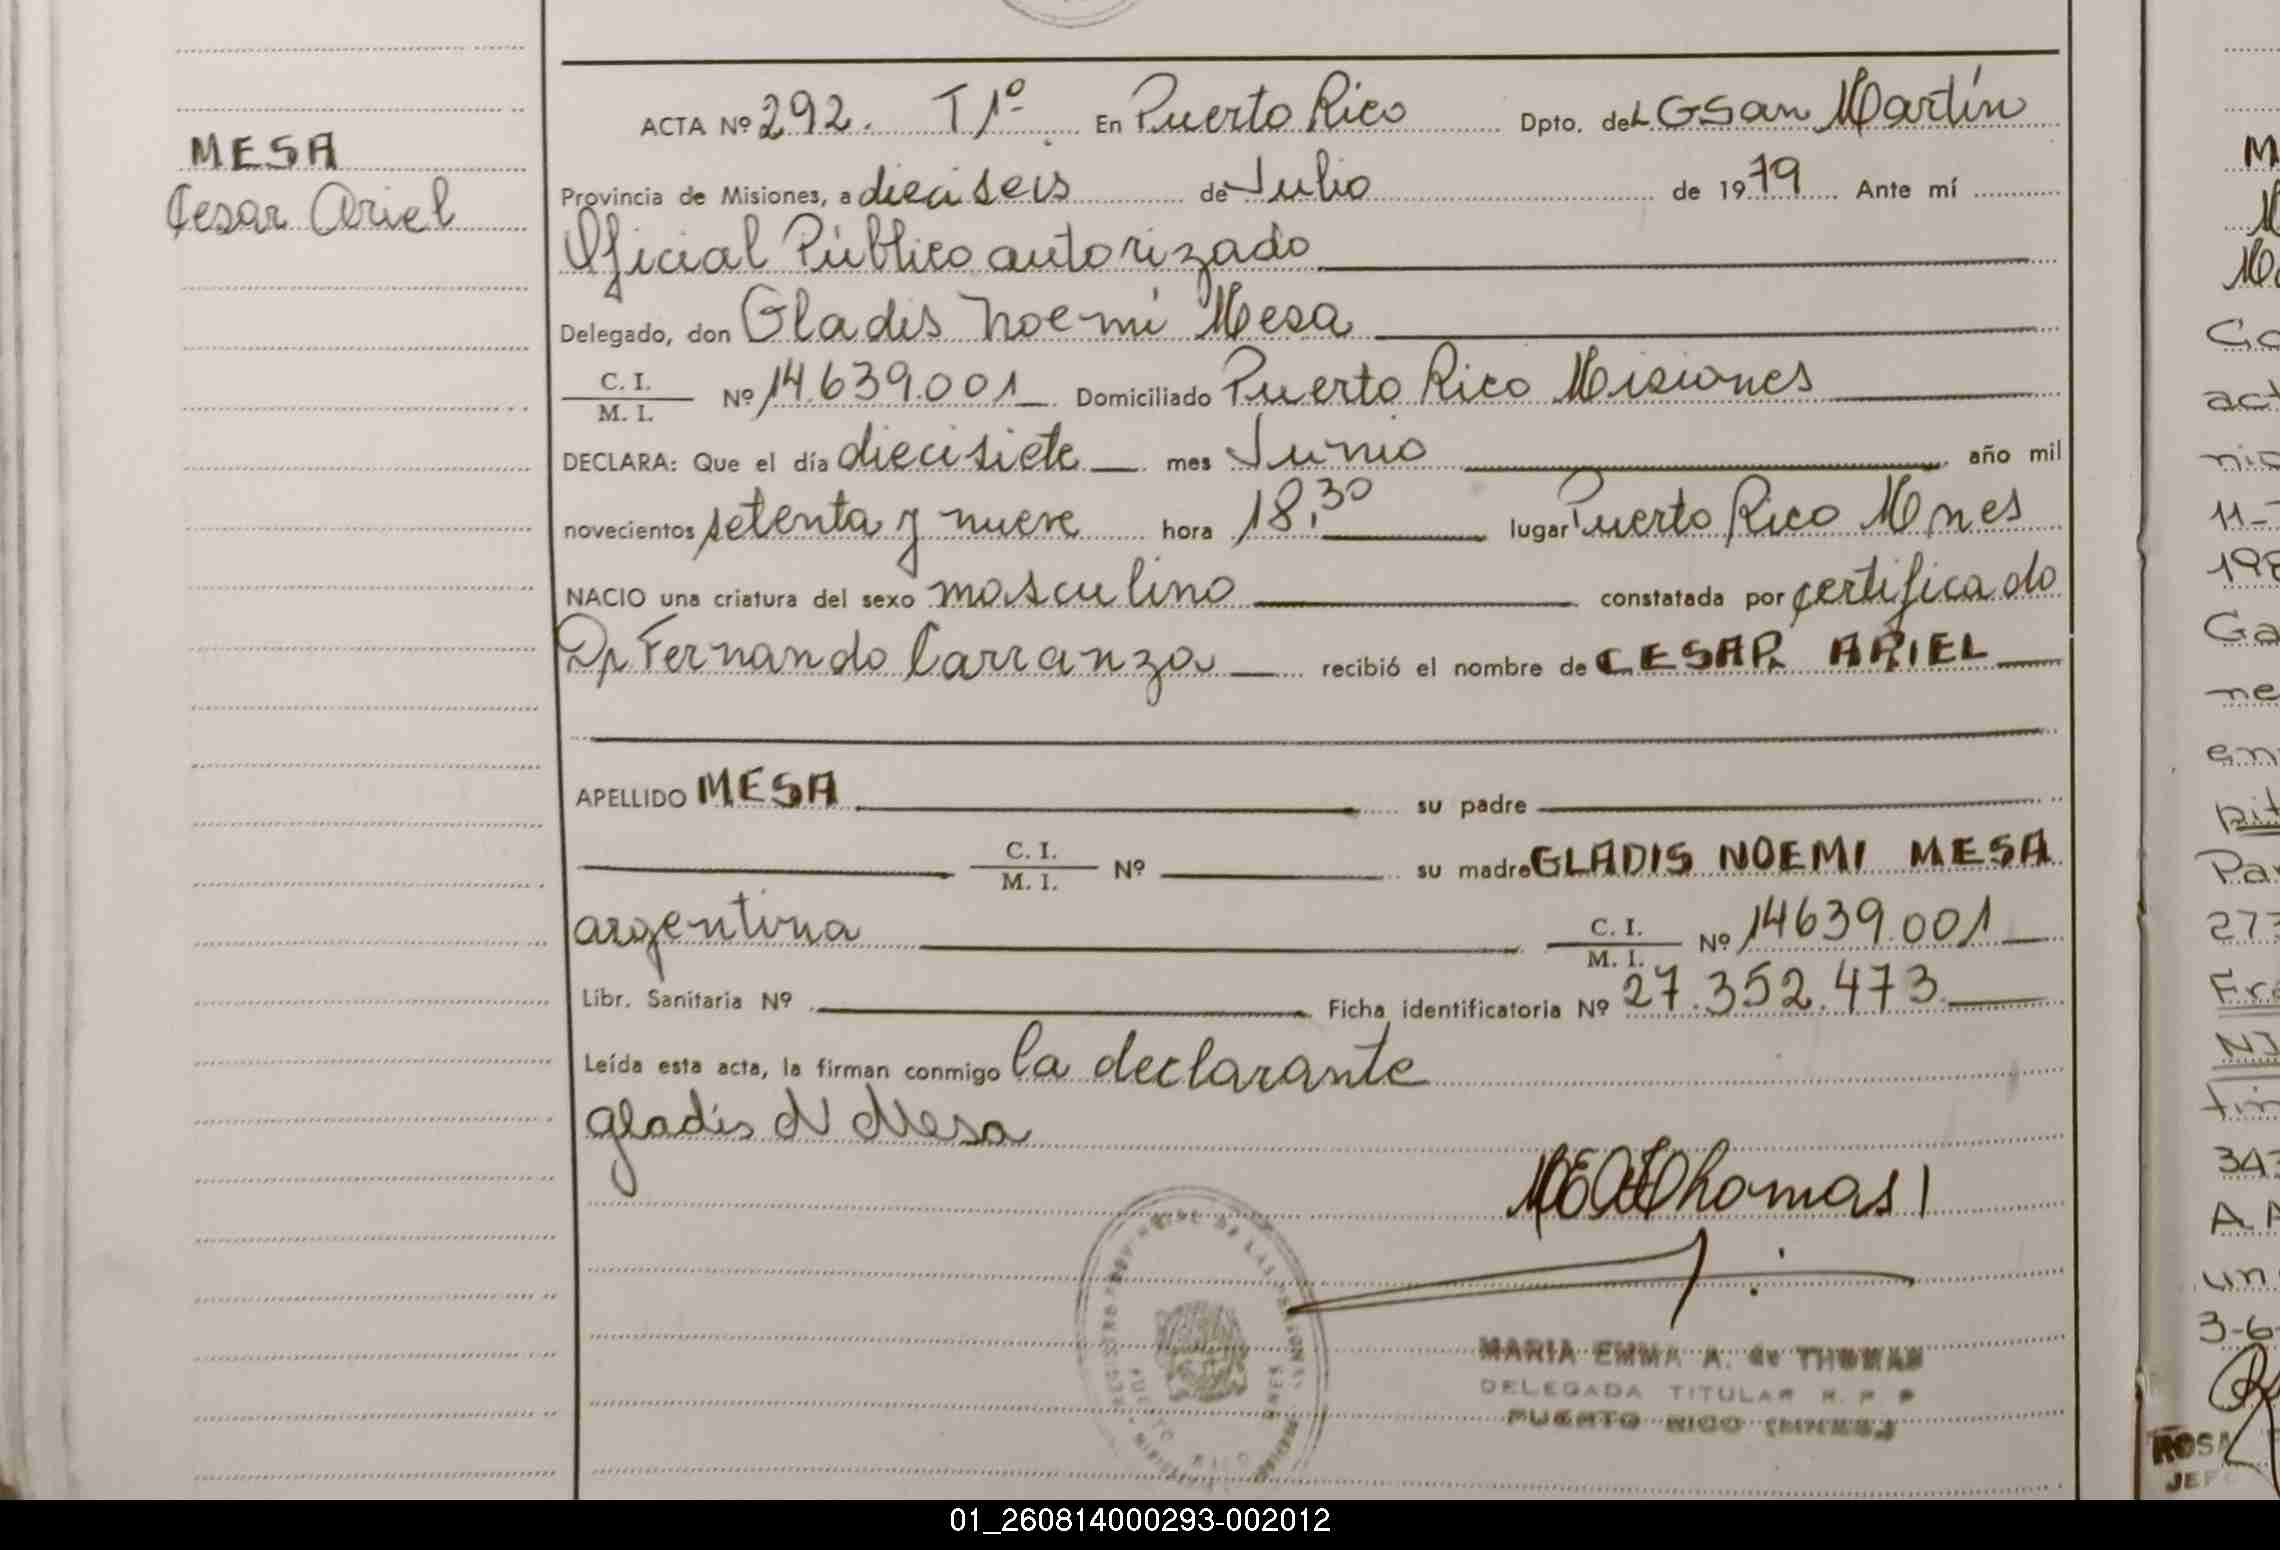 MESA
Cesar Ariel
ACTA Nº 292. T 1º En Puerto Rico Dpto. del G San Martín
Provincia de Misiones, a dieciseis de Julio de 1979 Ante mí
Oficial Público autorizado
Delegado, don Gladis Noemí Mesa
C. I.
M. I. Nº 14.639.001 Domiciliado Puerto Rico Misiones
DECLARA: Que el día diecisiete mes Junio año mil
novecientos setenta y nueve hora 18,30 lugar Puerto Rico Mnes
NACIO una criatura del sexo masculino constatada por certificado
Dr Fernando Carranza recibió el nombre de CESAR ARIEL
APELLIDO MESA su padre
C. I.
M. I. Nº su madre GLADIS NOEMI MESA
argentina C. I.
M. I. Nº 14639.001
Libr. Sanitaria Nº Ficha identificatoria Nº 27.352.473
Leída esta acta, la firman conmigo la declarante
gladis N Mesa
MEAdThomas
MARIA EMMA A. de THOMAS
DELEGADA TITULAR R. P. P
PUERTO RICO (MNES.)
act
11-7
198
Ga
ne
en
pit
Pa
273
Fra
NI
tin
343
A.A
un
3-6-
ROSA
JEF
01_260814000293-002012